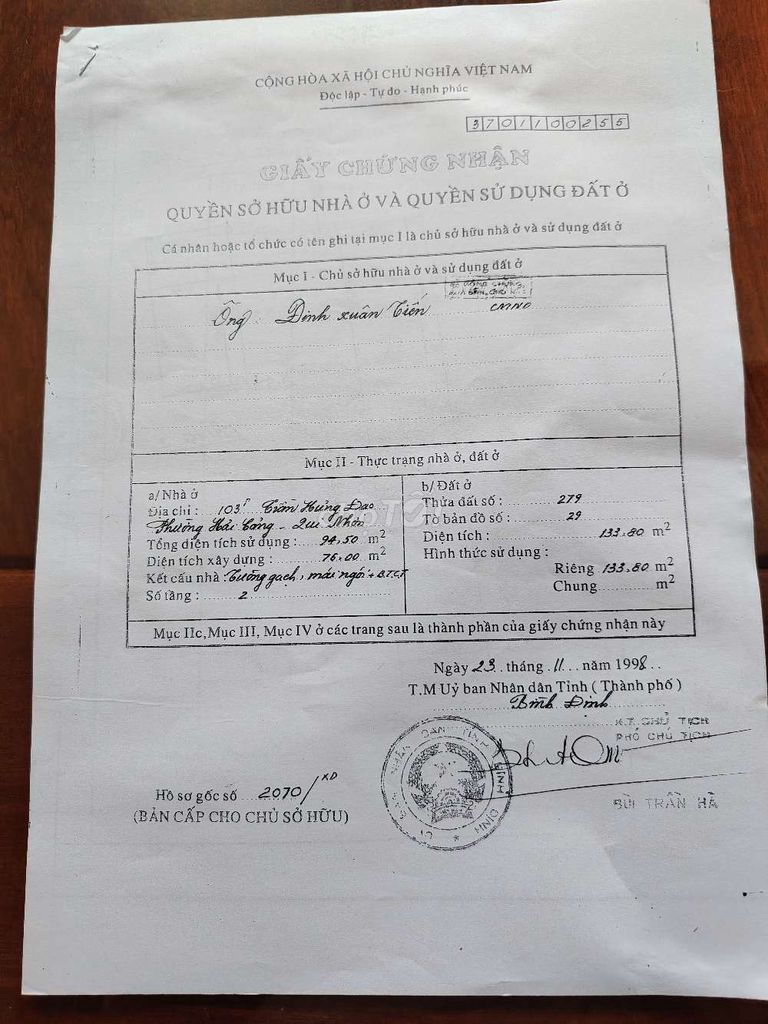 CỘNG HÒA XÃ HỘI CHỦ NGHĨA VIỆT NAM
Độc lập - Tự do - Hạnh phúc
3701100255
GIẤY CHỨNG NHẬN
QUYỀN SỞ HỮU NHÀ Ở VÀ QUYỀN SỬ DỤNG ĐẤT Ở
Cá nhân hoặc tổ chức có tên ghi tại mục I là chủ sở hữu nhà ở và sử dụng đất ở
Mục I - Chủ sở hữu nhà ở và sử dụng đất ở
Ông Đinh Xuân Tiến CMND
Mục II - Thực trạng nhà ở, đất ở
a/ Nhà ở
Địa chỉ : 103F Trần Hưng Đạo
Phường Hải Cảng - Qui Nhơn
Tổng diện tích sử dụng : 94,50 m2
Diện tích xây dựng : 76.00 m2
Kết cấu nhà Tường gạch, mái ngói + B.T.C.T
Số tầng : 2
b/ Đất ở
Thửa đất số : 279
Tờ bản đồ số : 29
Diện tích : 133,80 m2
Hình thức sử dụng :
Riêng 133,80 m2
Chung m2
Mục IIc, Mục III, Mục IV ở các trang sau là thành phần của giấy chứng nhận này
Ngày 23 tháng 11 năm 1998
T.M Uỷ ban Nhân dân Tỉnh ( Thành phố )
Bình Định
K.T. CHỦ TỊCH
PHÓ CHỦ TỊCH
BÙI TRẦN HÀ
Hồ sơ gốc số 2070/XD
(BẢN CẤP CHO CHỦ SỞ HỮU)